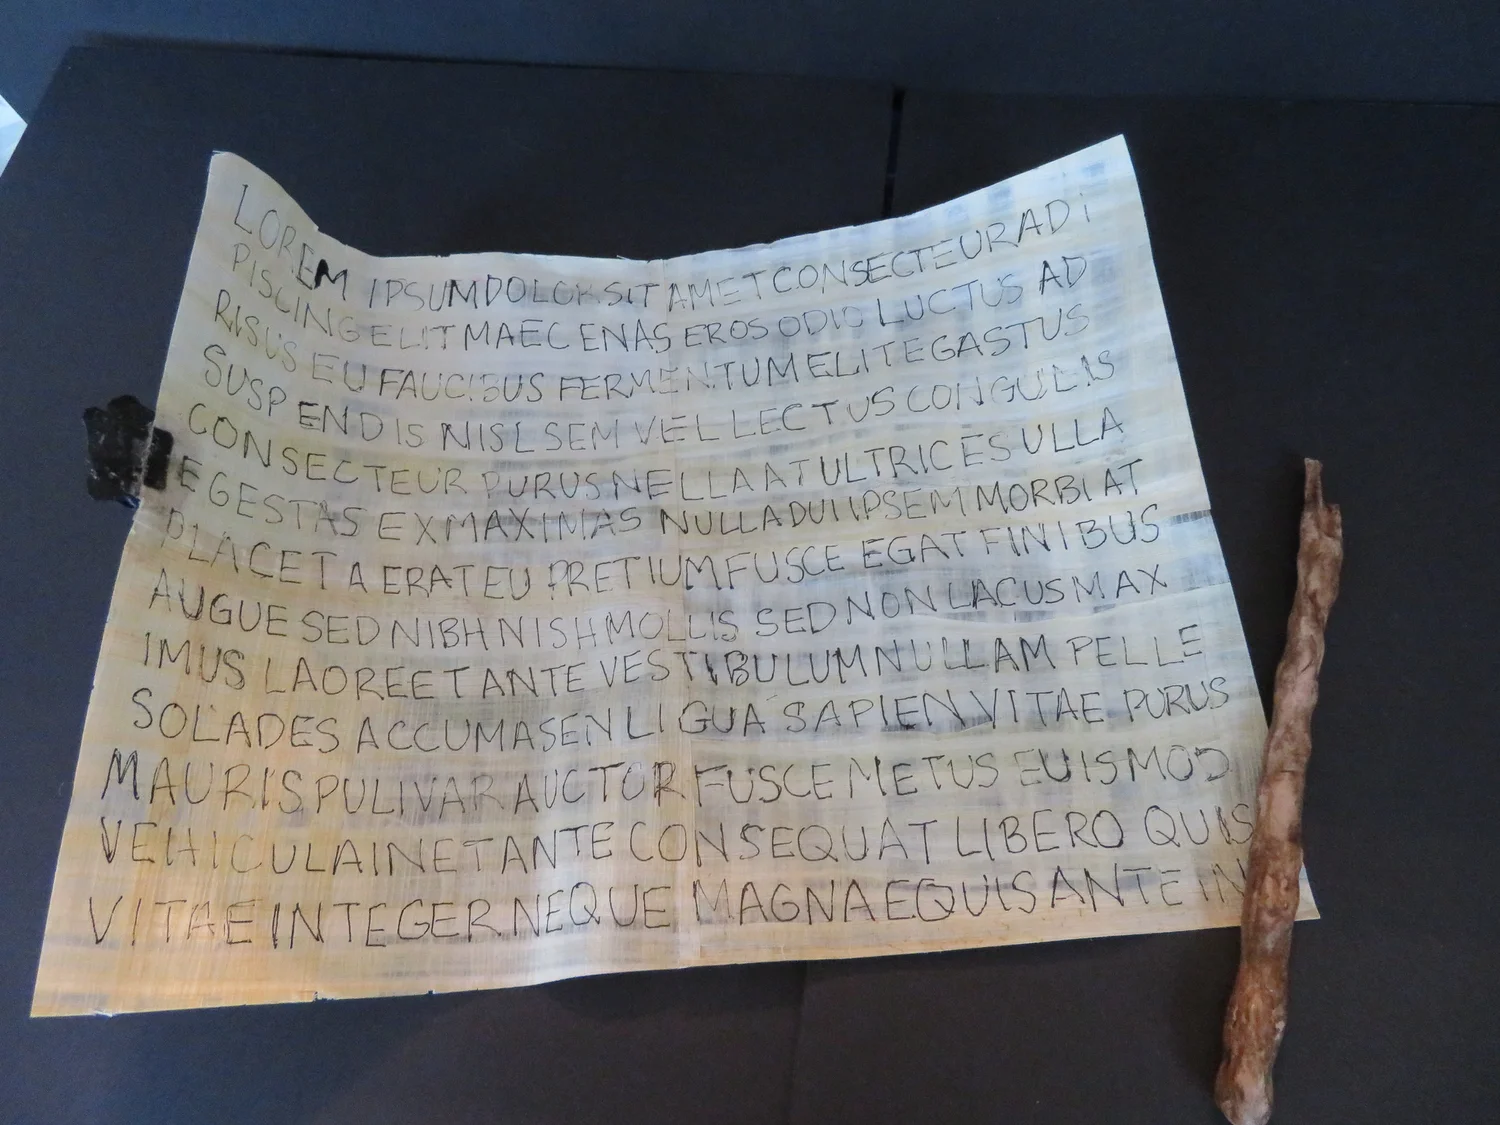 LOREM IPSUMDOLOR SIT AMET CONSECTEUR ADi
PISCING ELIT MAECENAS EROS ODIO LUCTUS AD
RISUS EU FAUCIBUS FERMENTUM ELITEGASTUS
SUSPENDIS NISL SEM VEL LECTUS CONGULIS
CONSECTEUR PURUS NELLA AT ULTRICES ULLA
EGESTAS EX MAXIMAS NULLA DUI IPSEM MORBI AT
PLACET A ERAT EU PRETIUM FUSCE EGAT FINIBUS
AUGUE SED NIBH NISH MOLLIS SED NON LACUS MAX
IMUS LAOREET ANTE VESTIBULUM NULLAM PELLE
SOLADES ACCUMASEN LIGUA SAPIEN VITAE PURUS
MAURIS PULIVAR AUCTOR FUSCE METUS EUISMOD
VEHICULA IN ET ANTE CONSEQUAT LIBERO QUIS
VITAE INTEGER NEQUE MAGNA EQUIS ANTE IN